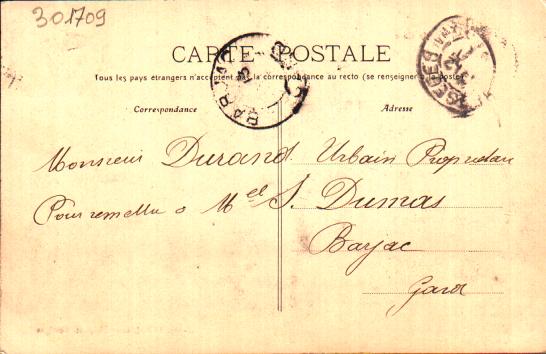 301709
CARTE POSTALE
Tous les pays étrangers n'acceptent pas la correspondance au recto (se renseigner à la poste)
Correspondance Adresse
BARJAC
Monsieur Durand Urbain Propriétaire
Pour remettre à Mel S. Dumas
Barjac
Gard